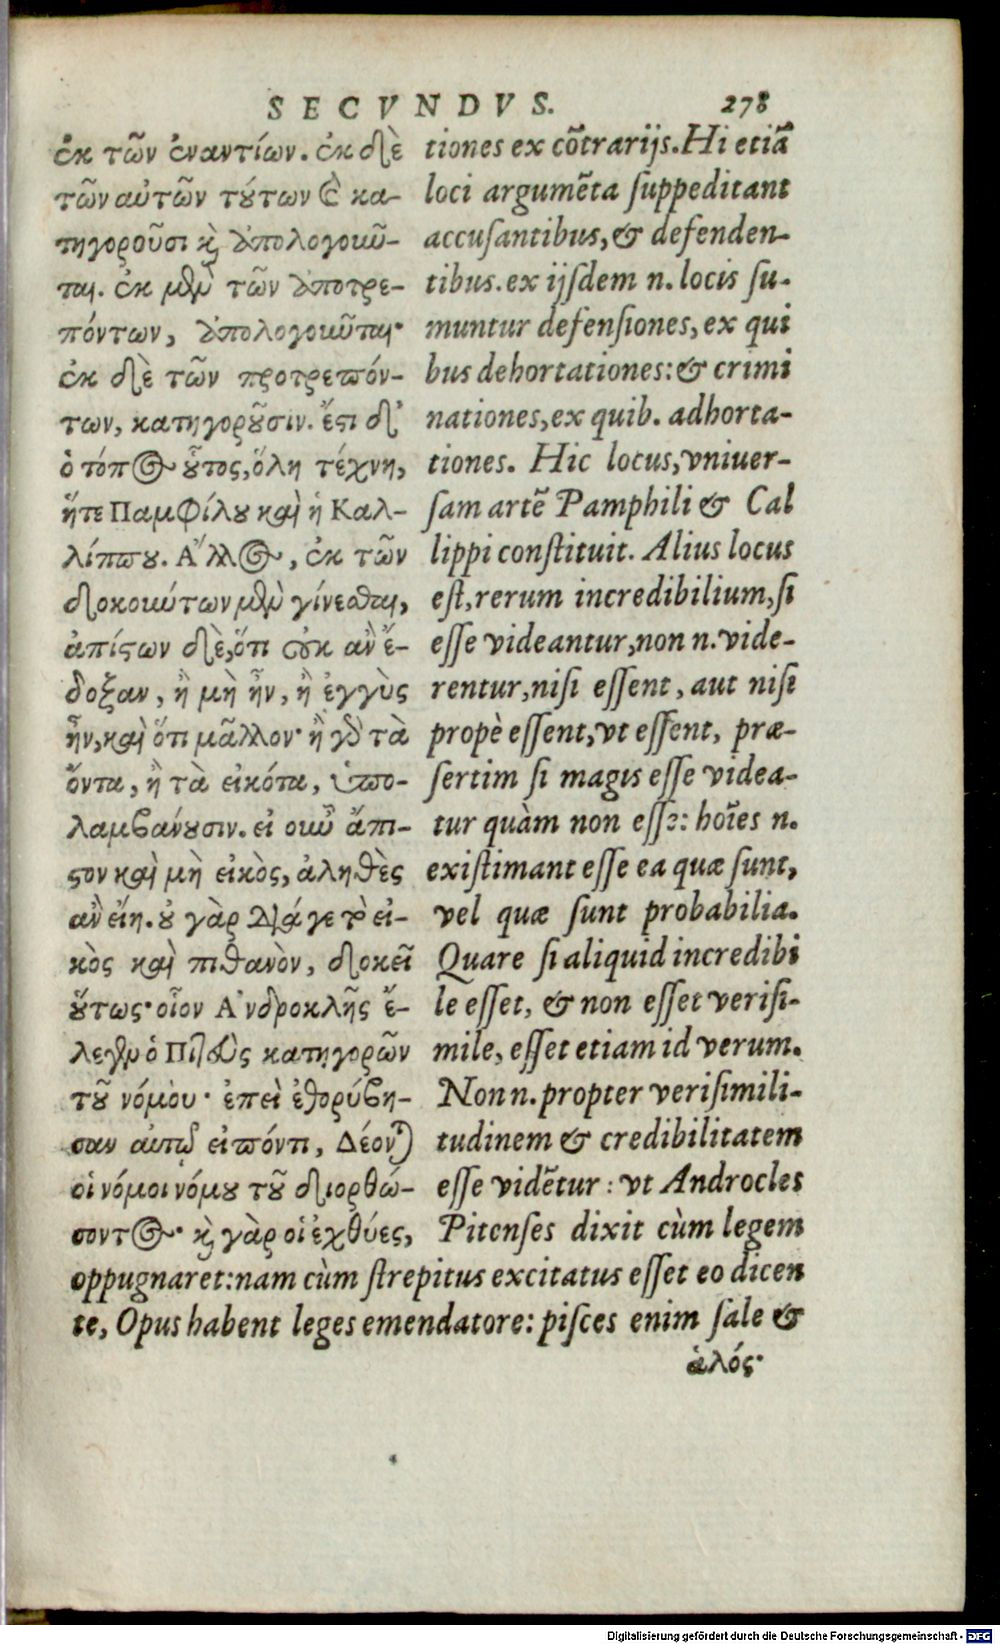 SECVNDVS. 278
ἐκ τῶν ἐναντίων. ἐκ δὲ
τῶν αὐτῶν τύτων & κα-
τηγοροῦσι κỳ ἀπολογοιοῦ-
ται. ἐκ μὲν τῶν ἀποτρε-
πόντων, ἀπολογοῦνται·
ἐκ δὲ τῶν προτρεπόν-
των, κατηγορȣ͂σιν. ἔστι δ'
ὁ τόπος ȣ̔͂τος, ὅλη τέχνη,
ἥτε Παμφίλȣ καὶ ἡ Καλ-
λίππου. Α῎λλος, ἐκ τῶν
δοκούντων μὲν γίνεσθαι,
ἀπίστων δὲ, ὅτι οὐκ ἂν ἔ-
δοξαν, ἢ μὴ ἦν, ἢ ἐγγὺς
ἦν, καὶ ὅτι μᾶλλον· ἢ γὸ τὰ
ὄντα, ἢ τὰ εἰκότα, ὑπο-
λαμβάνȣσιν. εἰ οὖν ἄπι-
στον καὶ μὴ εἰκὸς, ἀληθὲς
ἂν εἴη. ȣ̓ γὰρ διάγε τὸ εἰ-
κὸς καὶ πιθανὸν, δοκεῖ
ȣ̔́τως· οἷον Α᾿νδροκλῆς ἔ-
λεγεν ὁ Πιτθεὺς κατηγορῶν
τȣ͂ νόμου· ἐπεὶ ἐθορύβη-
σαν αὐτῷ εἰπόντι, Δέονται
οἱ νόμοι νόμȣ τȣ͂ διορθώ-
σοντος· κỳ γὰρ οἱ ἐχθύες,
tiones ex cõtrarijs. Hi etiã
loci argumẽta ſuppeditant
accuſantibus, & defenden-
tibus. ex ijſdem n. locis ſu-
muntur defenſiones, ex qui
bus dehortationes: & crimi
nationes, ex quib. adhorta-
tiones. Hic locus, vniuer-
ſam artẽ Pamphili & Cal
lippi conſtituit. Alius locus
eſt, rerum incredibilium, ſi
eſſe videantur, non n. vide-
rentur, niſi eſſent, aut niſi
propè eſſent, vt eſſent, præ-
ſertim ſi magis eſſe videa-
tur quàm non eſſe: hoĩes n.
exiſtimant eſſe ea quæ ſunt,
vel quæ ſunt probabilia.
Quare ſi aliquid incredibi
le eſſet, & non eſſet veriſi-
mile, eſſet etiam id verum.
Non n. propter veriſimili-
tudinem & credibilitatem
eſſe vidẽtur: vt Androcles
Pitenſes dixit cùm legem
oppugnaret: nam cùm ſtrepitus excitatus eſſet eo dicen
te, Opus habent leges emendatore: piſces enim ſale &
ἁλός·
Digitalisierung gefördert durch die Deutsche Forschungsgemeinschaft - DFG